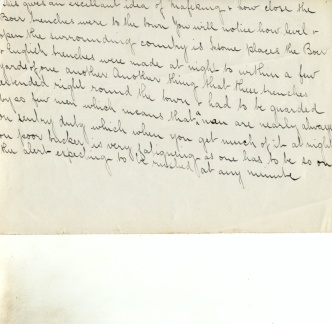 gives an excellent idea of Mafeking & how close the
Boer trenches were to the town You will notice how level &
open the surrounding country is In some places the Boer
& English trenches were made at night to within a few
yards of one another Another thing that these trenches
extended right round the town & had to be guarded
by as few men which means that a man are nearly always
on sentry duty which when you get much of it at night
on poor tucker is very fatiguing as one has to be so on
the alert expecting to be rushed at any minute